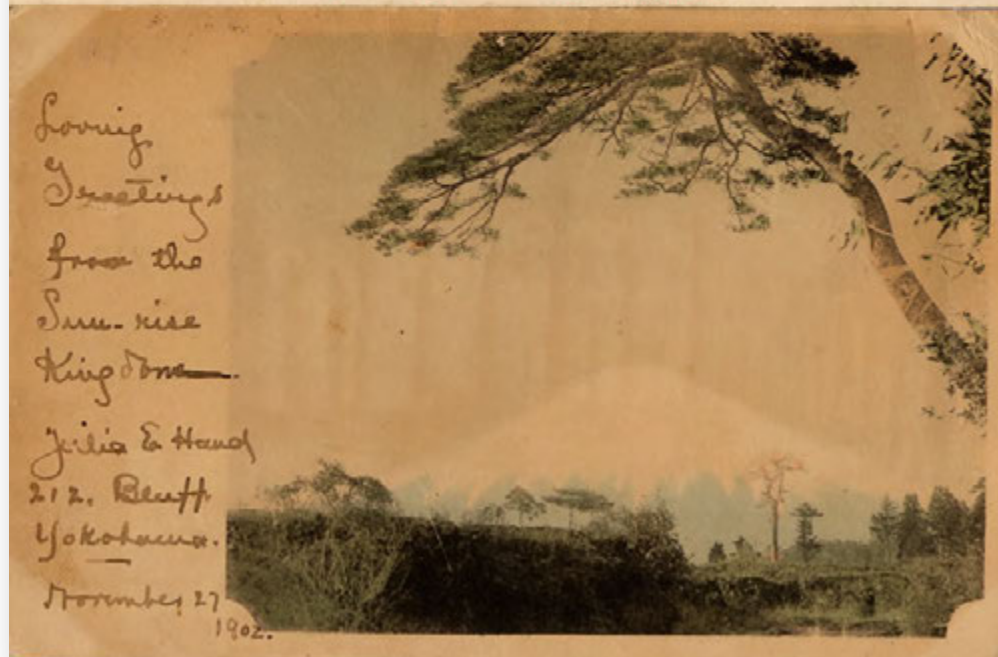 Loving
Greetings
from the
Sun-rise
Kingdom.
Julia E Hand
212. Bluff
Yokohama.
November 27
1902.